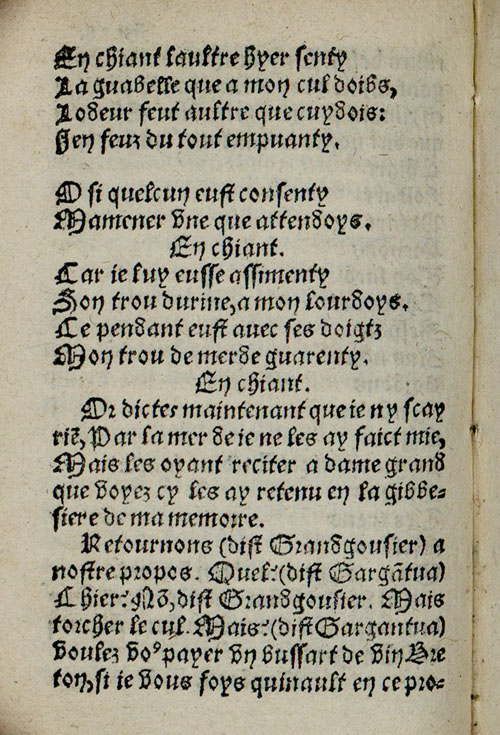 En chiant laultre hyer senty
La guabelle que a mon cul doibs,
Lodeur feut aultre que cuydois:
Jen feuz du tout empuanty.
O si quelcun eust consenty
Mamener vne que attendoys.
En chiant.
Car ie luy eusse assimenty
Son trou durine, a mon lourdoys.
Ce pendant eust auec ses doigtz
Mon trou de merde guarenty.
En chiant.
Or dictes maintenant que ie ny scay
riẽ, Par la mer de ie ne les ay faict mie,
Mais les oyant reciter a dame grand
que voyez cy les ay retenu en la gibbe-
siere de ma memoire.
Retournons (dist Grandgousier) a
nostre propos. Quel? (dist Gargãtua)
Chier? Nõ, dist Grandgousier. Mais
torcher le cul. Mais? (dist Gargantua)
voulez voꝰ payer vn bussart de vin Bre
ton, si ie vous foys quinault en ce pro-